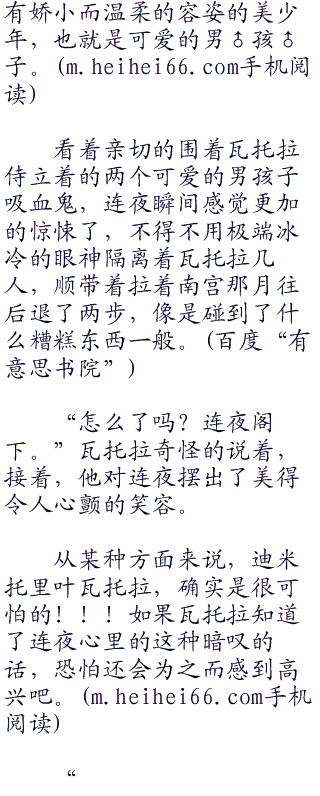 有娇小而温柔的容姿的美少
年，也就是可爱的男♂孩♂
子。(m.heihei66.com手机阅
读)
看着亲切的围着瓦托拉
侍立着的两个可爱的男孩子
吸血鬼，连夜瞬间感觉更加
的惊悚了，不得不用极端冰
冷的眼神隔离着瓦托拉几
人，顺带着拉着南宫那月往
后退了两步，像是碰到了什
么糟糕东西一般。(百度“有
意思书院”)
“怎么了吗？连夜阁
下。”瓦托拉奇怪的说着，
接着，他对连夜摆出了美得
令人心颤的笑容。
从某种方面来说，迪米
托里叶瓦托拉，确实是很可
怕的！！！如果瓦托拉知道
了连夜心里的这种暗叹的
话，恐怕还会为之而感到高
兴吧。(m.heihei66.com手机
阅读)
“